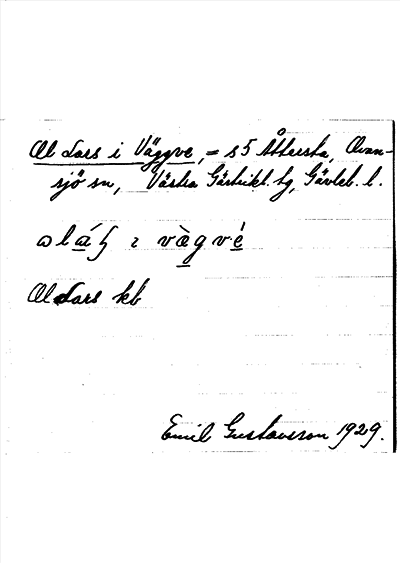 Ol Lars i Väggve, = s 5 Åttersta, Ovan-
sjö sn, Västra Gästrikl. tg, Gävleb. l.
Ol Lars kb
Emil Gustavsson 1929.